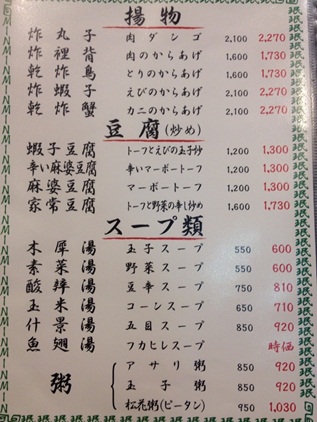 揚物
炸丸子 肉ダンゴ 2,100 2,270
炸裡背 肉のからあげ 1,600 1,730
乾炸鳥 とりのからあげ 1,600 1,730
炸蝦子 えびのからあげ 2,100 2,270
乾炸蟹 カニのからあげ 2,100 2,270
豆腐(炒め)
蝦子豆腐 トーフとえびの玉子炒 1,200 1,300
辛い麻婆豆腐 辛いマーボートーフ 1,200 1,300
麻婆豆腐 マーボートーフ 1,200 1,300
家常豆腐 トーフと野菜の辛し炒め 1,600 1,730
スープ類
木犀湯 玉子スープ 550 600
素菜湯 野菜スープ 550 600
酸辣湯 豆辛スープ 750 810
玉米湯 コーンスープ 650 710
什景湯 五目スープ 850 920
魚翅湯 フカヒレスープ 時価
粥
アサリ粥 850 920
玉子粥 850 920
松花粥(ピータン) 950 1,030